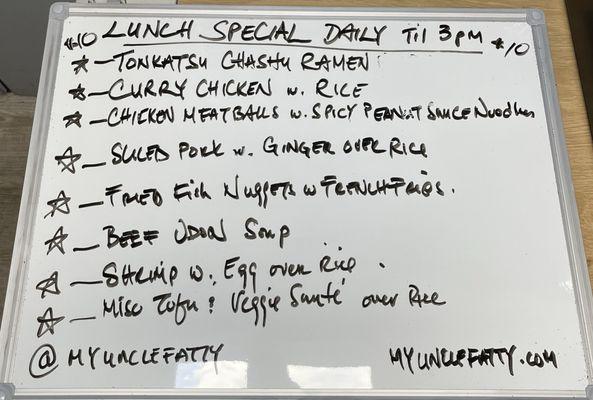 $10 LUNCH SPECIAL DAILY Til 3pm $10
☆ - TONKATSU CHASHU RAMEN
☆ - CURRY CHICKEN w. RICE
☆ - CHICKEN MEATBALLS w. SPICY PEANUT SAUCE Noodles
☆ - SLICED PORK w. GINGER OVER RICE
☆ - FRIED Fish Nuggets w FRENCH FRIES.
☆ - BEEF UDON Soup
☆ - SHRIMP w. Egg over Rice .
☆ - Miso Tofu & Veggie Sauté over Rice
@MYUNCLEFATTY MYUNCLEFATTY.COM